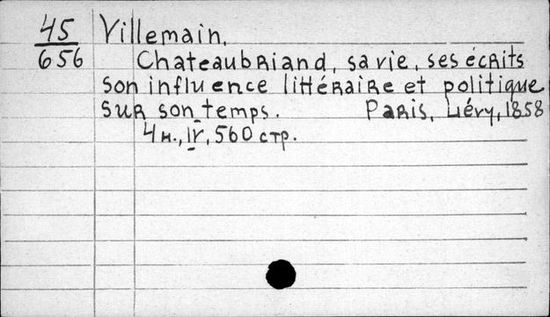 45
656
Villemain.
Chateaubriand, sa vie, ses écrits
son influence littéraire et politique
sur son temps. Paris, Liévy, 1858
4н., IV, 560 стр.